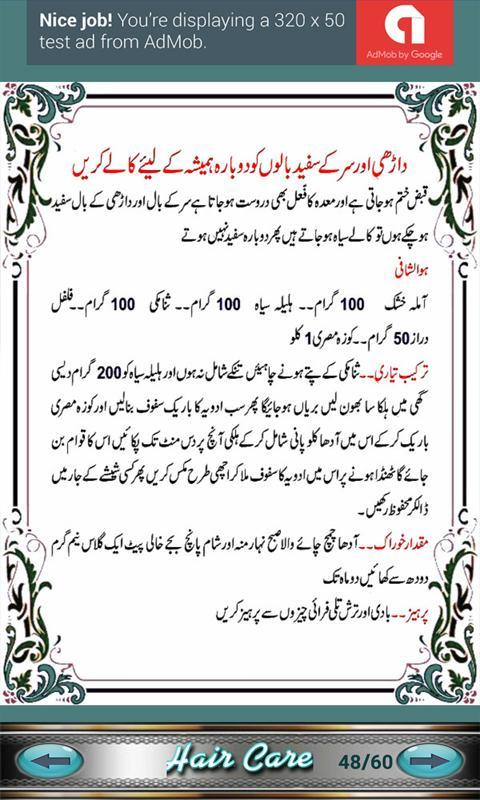 Nice job! You're displaying a 320 x 50
test ad from AdMob.
AdMob by Google
داڑھی اور سر کے سفید بالوں کو دوبارہ ہمیشہ کے لیئے کالے کریں
قبض ختم ہوجاتی ہے اور معدہ کا فعل بھی دروست ہوجاتا ہے سر کے بال اور داڑھی کے بال سفید
ہوچکے ہوں تو کالے سیاہ ہوجاتے ہیں پھر دوبارہ سفید نہیں ہوتے
ہوالشافی
آملہ خشک 100 گرام۔۔ ہلیلہ سیاہ 100 گرام۔۔ ثنامکی 100 گرام۔۔فلفل
دراز 50 گرام۔۔کوزہ مصری 1 کلو
ترکیب تیاری۔۔ثنامکی کے پتے ہونے چاہیئں تنکے شامل نہ ہوں اور ہلیلہ سیاہ کو 200 گرام دیسی
گھی میں ہلکا سا بھون لیں بریاں ہوجائیگا پھر سب ادویہ کا باریک سفوف بنالیں اور کوزہ مصری
باریک کرکے اس میں آدھا کلو پانی شامل کرکے ہلکی آنچ پر دس منٹ تک پکائیں اس کا قوام بن
جائے گا ٹھنڈا ہونے پر اس میں ادویہ کا سفوف ملا کر اچھی طرح مکس کریں پھر کسی شیشے کے جار میں
ڈالکر محفوظ رکھیں۔
مقدار خوراک۔۔آدھا چمچ چائے والا صبح نہار منہ اور شام پانچ بجے خالی پیٹ ایک گلاس نیم گرم
دودھ سے کھائیں دو ماہ تک
پرہیز۔۔بادی اور ترش تلی فرائی چیزوں سے پرہیز کریں
Hair Care 48/60